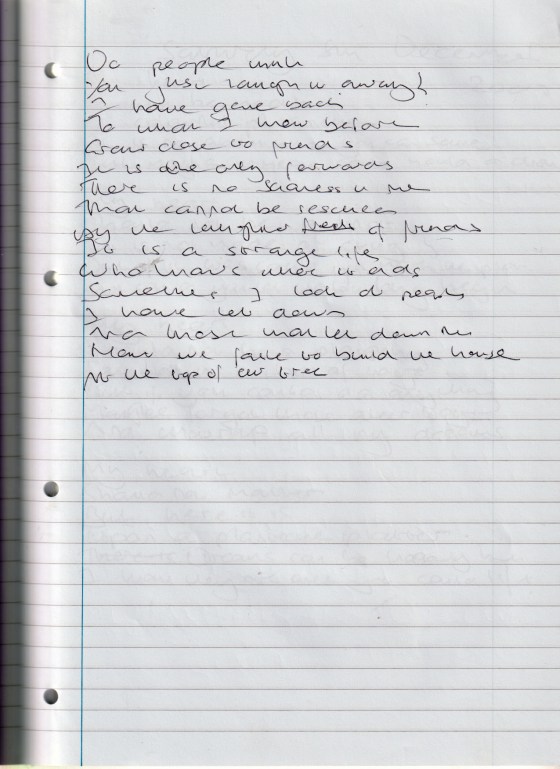 Do people think
You just laugh it away?
I have gone back
To what I knew before
Grow close to friends
It is the only forwards
There is no sadness in me
That cannot be rescued
By the laughter of friends
It is a strange life
Who knows where it ends
Sometimes I look at people
I have let down
Not those that let down me
How we failed to build the house
At the top of our tree